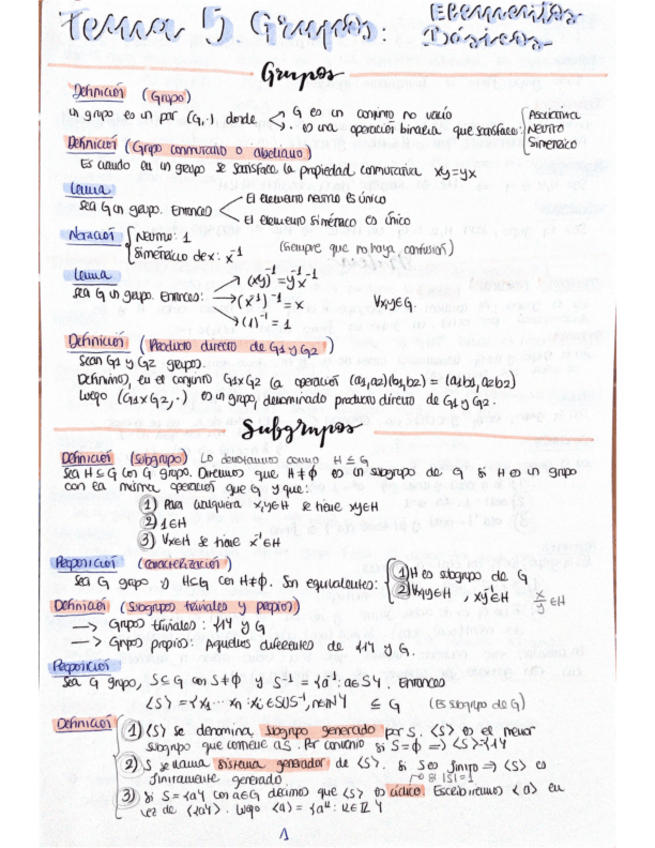 Tema 5. Grupos: Elementos Básicos
Grupos
Definición (Grupo)
Un grupo es un par (G,·) donde G es un conjunto no vacío
· es una operación binaria que satisface: Asociativa
Neutro
Simétrico
Definición (Grupo conmutativo o abeliano)
Es cuando en un grupo se satisface la propiedad conmutativa xy=yx
Lema
Sea G un grupo. Entonces El elemento neutro es único
El elemento simétrico es único
Notación Neutro: 1
Simétrico de x: x⁻¹ (Siempre que no haya confusión)
Lema
Sea G un grupo. Entonces: → (xy)⁻¹=y⁻¹x⁻¹
→ (x⁻¹)⁻¹=x ∀x,y∈G.
→ (1)⁻¹=1
Definición (Producto directo de G1 y G2)
Sean G1 y G2 grupos.
Definimos, en el conjunto G1xG2 la operación (a1,a2)(b1,b2) = (a1b1,a2b2)
Luego (G1xG2,·) es un grupo, denominado producto directo de G1 y G2.
Subgrupos
Definición (Subgrupo) Lo denotamos como H≤G
Sea H⊆G con G grupo. Diremos que H≠∅ es un subgrupo de G si H es un grupo
con la misma operación que G y que:
1) Para cualquiera x,y∈H se tiene xy∈H
2) 1∈H
3) ∀x∈H se tiene x⁻¹∈H
Proposición (caracterización)
Sea G grupo y H⊆G con H≠∅. Son equivalentes: 1) H es subgrupo de G
2) ∀x,y∈H, xy⁻¹∈H x/y∈H
Definición (Subgrupos triviales y propios)
→ Grupos triviales: {1} y G
→ Grupos propios: Aquellos diferentes de {1} y G.
Proposición
Sea G grupo, S⊆G con S≠∅ y S⁻¹={a⁻¹: a∈S}. Entonces
<S>={x1...xn: xi∈S∪S⁻¹, n∈N} ≤ G (Es subgrupo de G)
Definición 1) <S> se denomina subgrupo generado por S. <S> es el menor
subgrupo que contiene a S. Por convenio si S=∅ ⇒ <S>={1}
2) S se llama sistema generador de <S>. Si S es finito ⇒ <S> es
finitamente generado. o si |S|=1
3) Si S={a} con a∈G decimos que <S> es cíclico. Escribiremos <a> en
vez de <{a}>. Luego <a>={aᵏ: k∈Z}
1